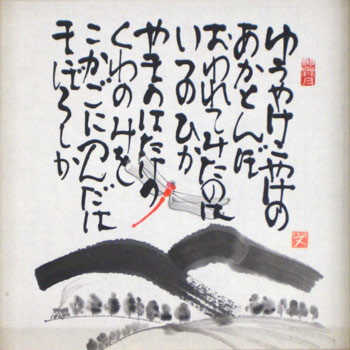 ゆうやけこやけの
あかとんぼ
おわれてみたのは
いつのひか
やまのはたけの
くわのみを
こかごにつんだは
まぼろしか
文